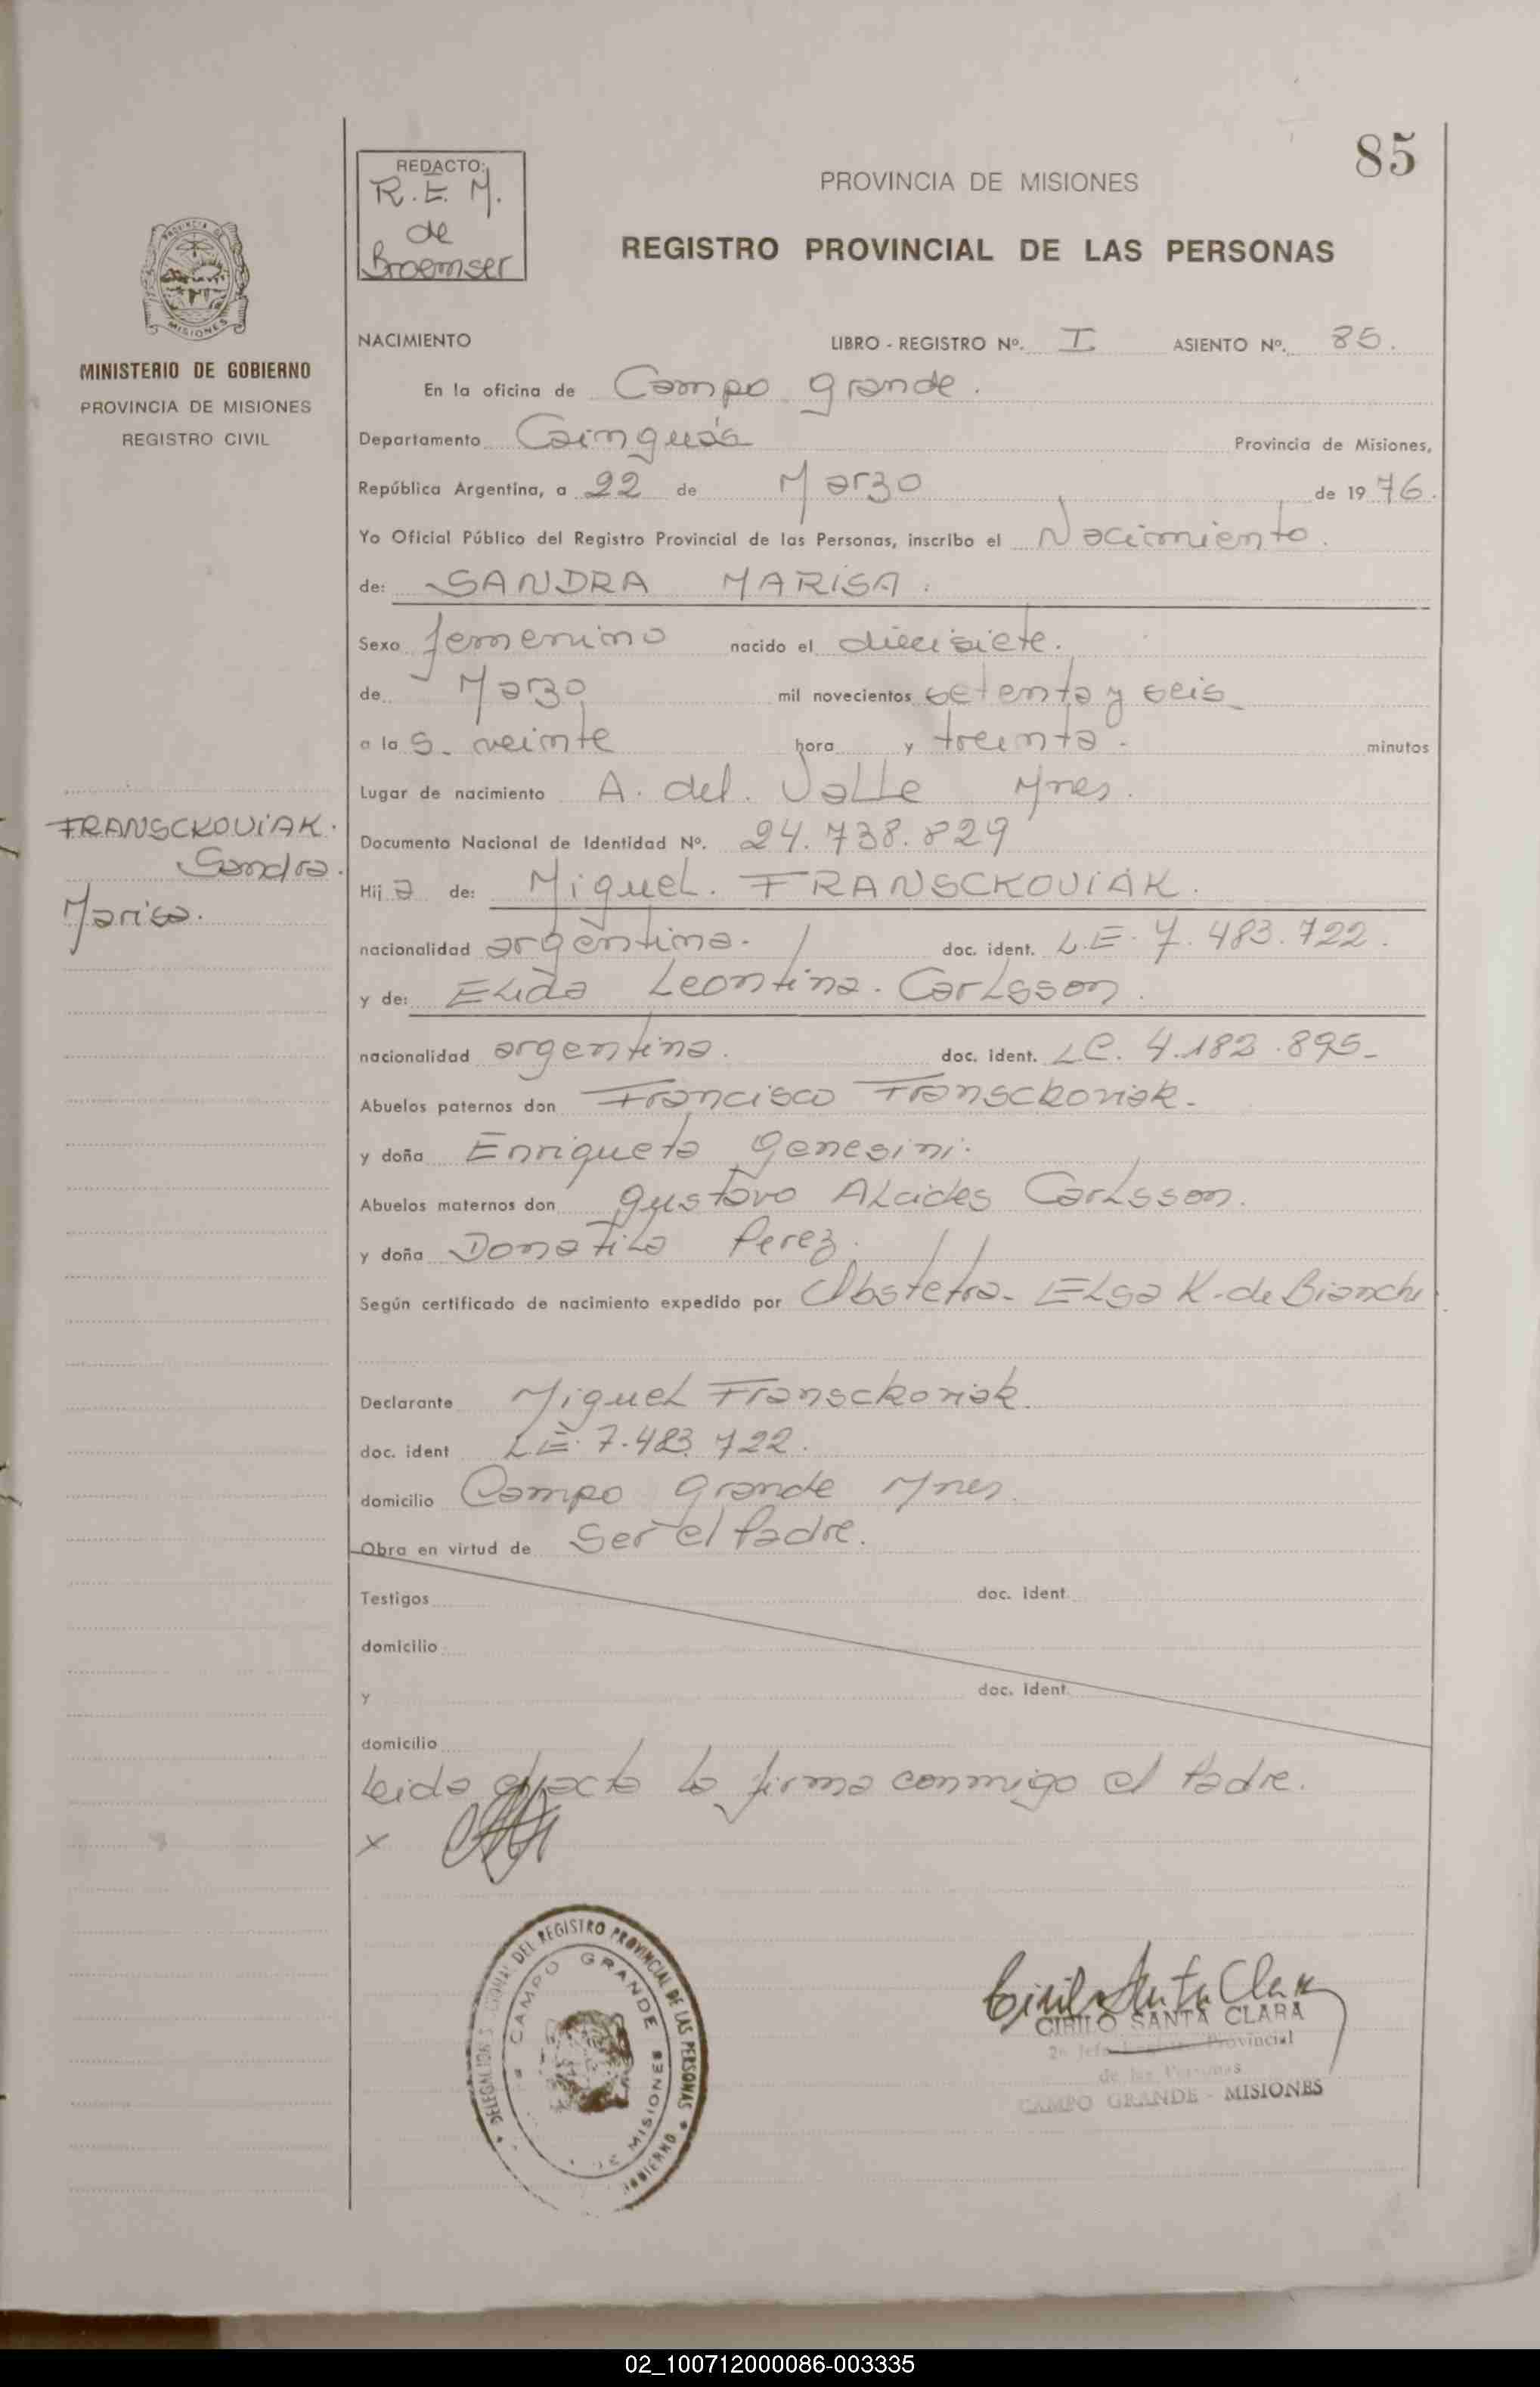 85
REDACTO:
R. E. M.
de
Broemser
PROVINCIA DE MISIONES
REGISTRO PROVINCIAL DE LAS PERSONAS
MISIONES
MINISTERIO DE GOBIERNO
PROVINCIA DE MISIONES
REGISTRO CIVIL
FRANSCKOVIAK.
Sandra.
Marisa.
NACIMIENTO LIBRO - REGISTRO Nº. I. ASIENTO Nº. 85.
En la oficina de Campo grande.
Departamento Cainguás Provincia de Misiones,
República Argentina, a 22 de Marzo de 19 76.
Yo Oficial Público del Registro Provincial de las Personas, inscribo el Nacimiento.
de: SANDRA MARISA.
Sexo femenino nacido el diecisiete.
de Marzo mil novecientos setenta y seis
a la s. veinte hora y treinta. minutos
Lugar de nacimiento A. del. Valle Mnes.
Documento Nacional de Identidad Nº. 24.738.829
Hij a de: Miguel. FRANSCKOVIAK.
nacionalidad argentina. doc. ident. L.E. 7.483.722.
y de: Elida Leontina. Carlsson.
nacionalidad argentina. doc. ident. LC. 4.182.895-
Abuelos paternos don Francisco Fransckoviak-
y doña Enriqueta Genesini.
Abuelos maternos don gustavo Alcides Carlsson.
y doña Donatila Perez.
Según certificado de nacimiento expedido por Obstetra- Elsa K. de Bianchi
Declarante Miguel Fransckoviak.
doc. ident LE. 7.483.722.
domicilio Campo grande Mnes.
Obra en virtud de Ser el Padre.
Testigos doc. ident.
domicilio
y doc. ident.
domicilio
Leida el acta la firma conmigo el Padre.
x
DEL REGISTRO PROVINCIAL DE LAS PERSONAS
CAMPO GRANDE
MISIONES
Cirilo Santa Clara
CIRILO SANTA CLARA
2º Jefe Registro Provincial
de las Personas
CAMPO GRANDE - MISIONES
02_100712000086-003335